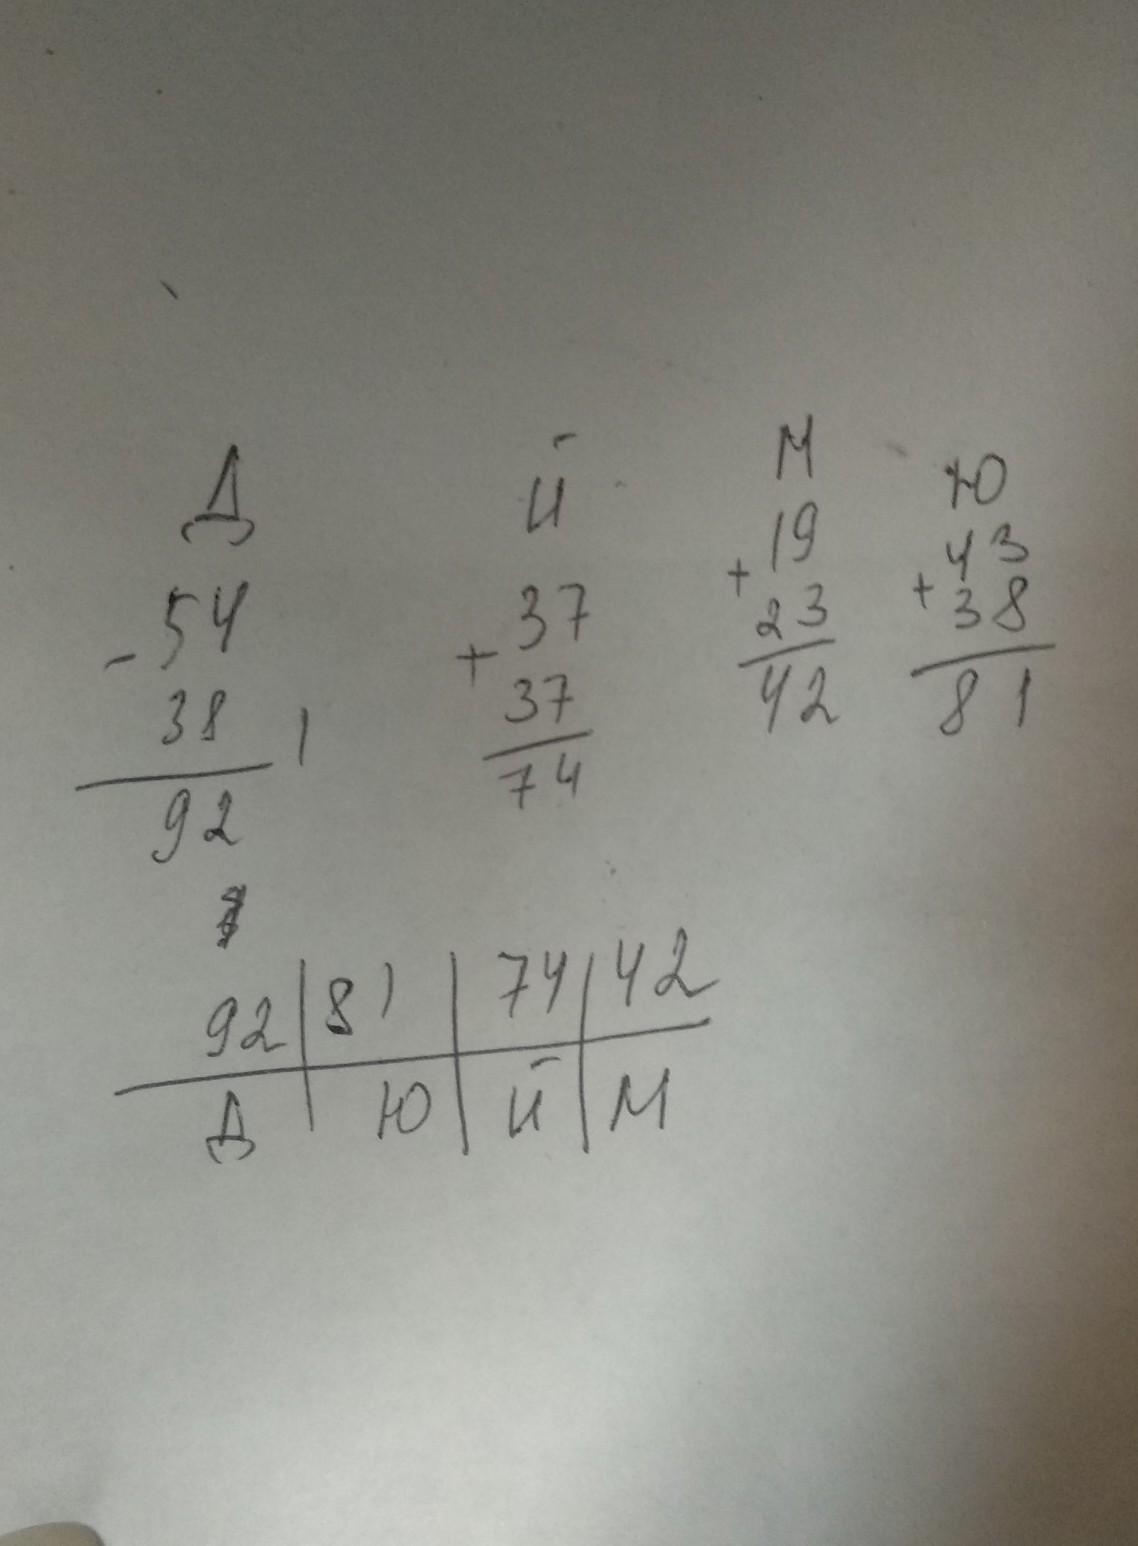 Д Й М Ю
- 54 + 37 + 19 + 43
38 37 23 38
92 74 42 81
92 81 74 42
Д Ю Й М